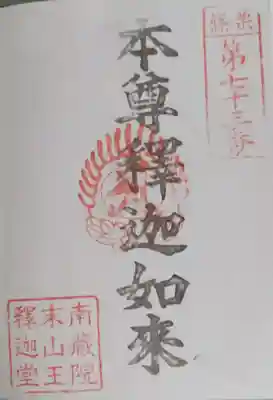 篠栗
第七十三番
本尊釋迦如來
南蔵院
末山王
釋迦堂